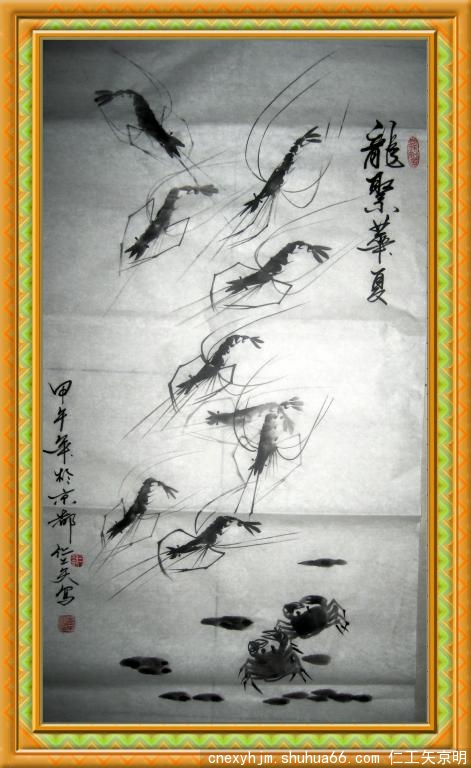 龍聚華夏
甲午年於京都 仁工矢寫
cnexyhjm.shuhua66.com 仁工矢京明